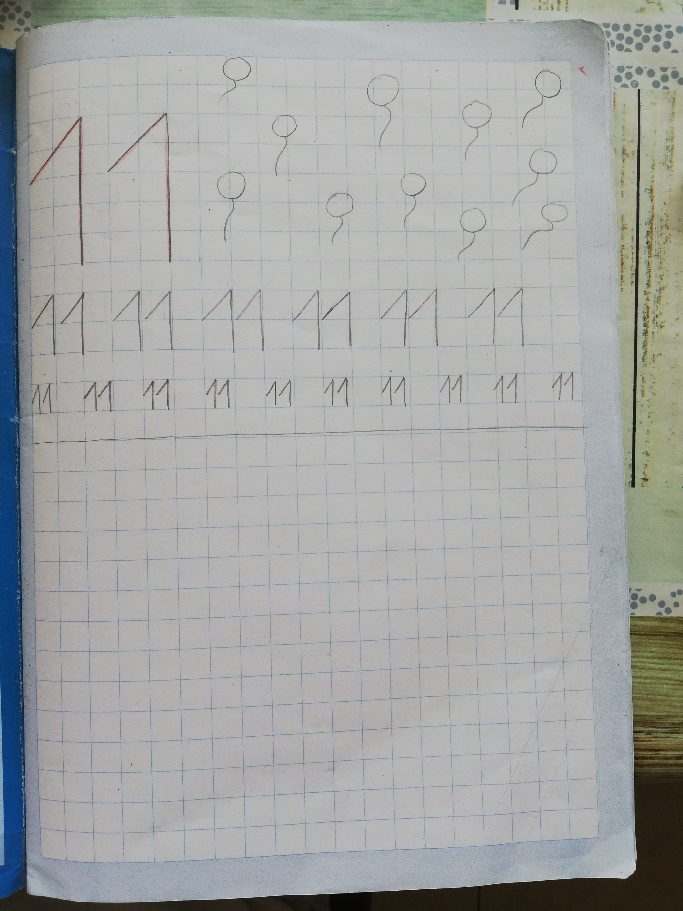 11
11 11 11 11 11 11
11 11 11 11 11 11 11 11 11 11